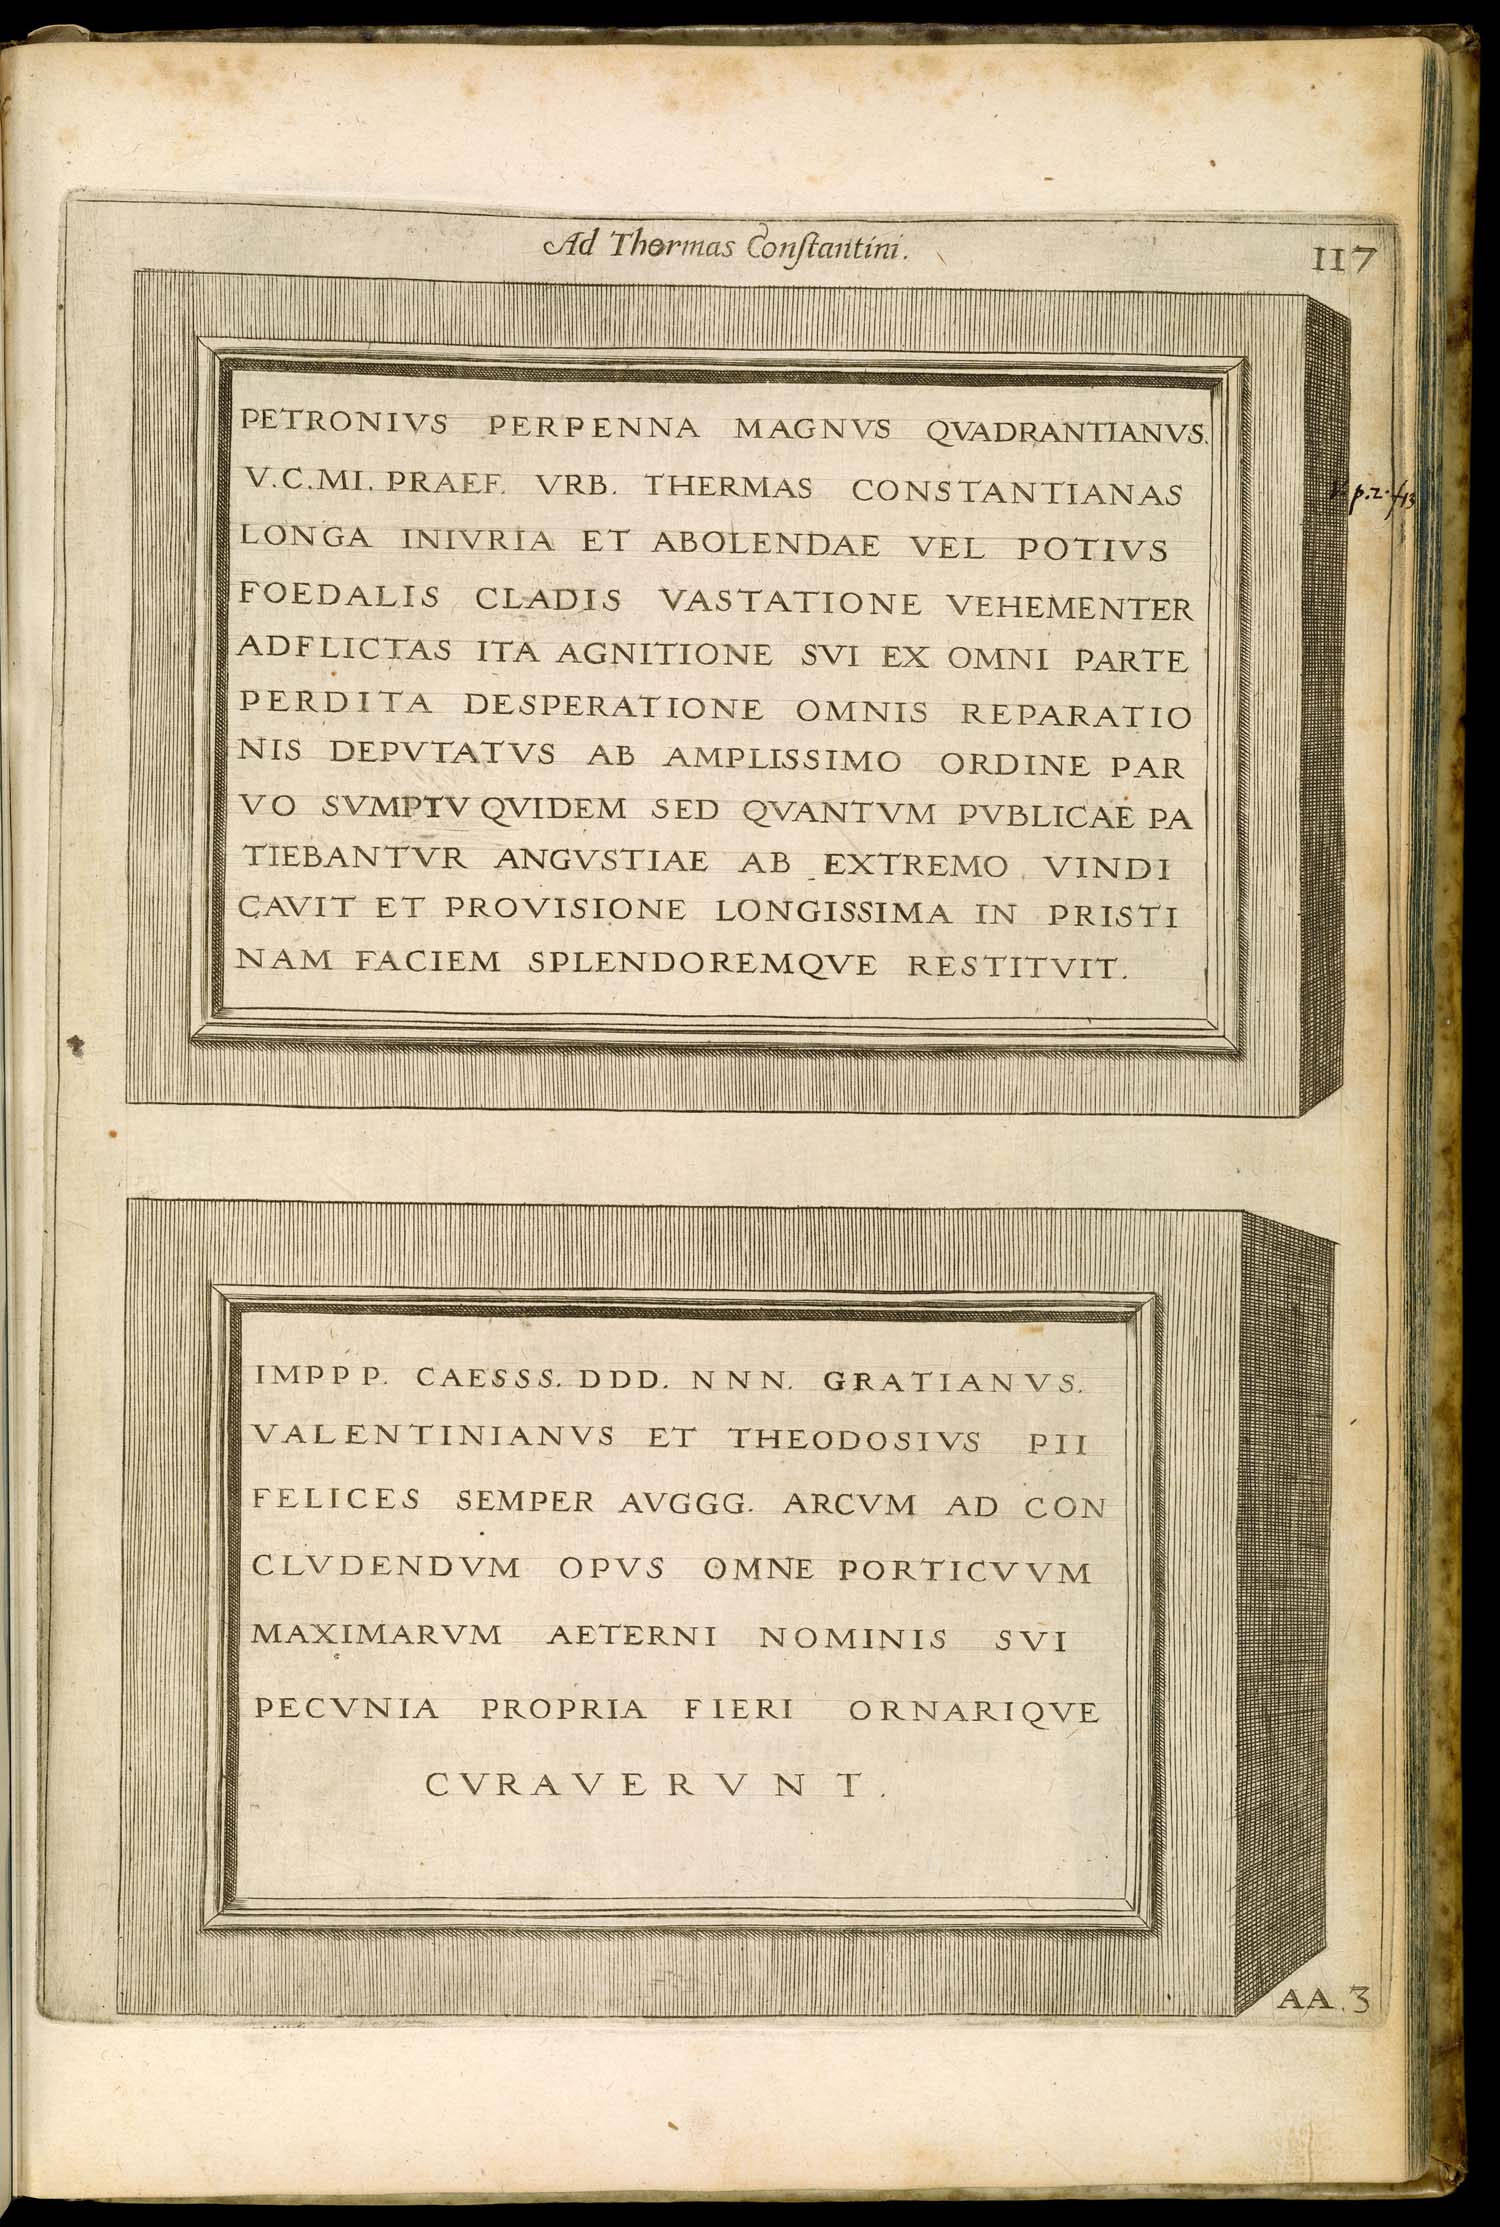 Ad Thermas Constantini.
117
PETRONIVS PERPENNA MAGNVS QVADRANTIANVS.
V.C.MI. PRAEF. VRB. THERMAS CONSTANTIANAS
LONGA INIVRIA ET ABOLENDAE VEL POTIVS
FOEDALIS CLADIS VASTATIONE VEHEMENTER
ADFLICTAS ITA AGNITIONE SVI EX OMNI PARTE
PERDITA DESPERATIONE OMNIS REPARATIO
NIS DEPVTATVS AB AMPLISSIMO ORDINE PAR
VO SVMPTV QVIDEM SED QVANTVM PVBLICAE PA
TIEBANTVR ANGVSTIAE AB EXTREMO VINDI
CAVIT ET PROVISIONE LONGISSIMA IN PRISTI
NAM FACIEM SPLENDOREMQVE RESTITVIT.
IMPPP. CAESSS. DDD. NNN. GRATIANVS.
VALENTINIANVS ET THEODOSIVS PII
FELICES SEMPER AVGGG. ARCVM AD CON
CLVDENDVM OPVS OMNE PORTICVVM
MAXIMARVM AETERNI NOMINIS SVI
PECVNIA PROPRIA FIERI ORNARIQVE
CVRAVERVNT.
AA.3